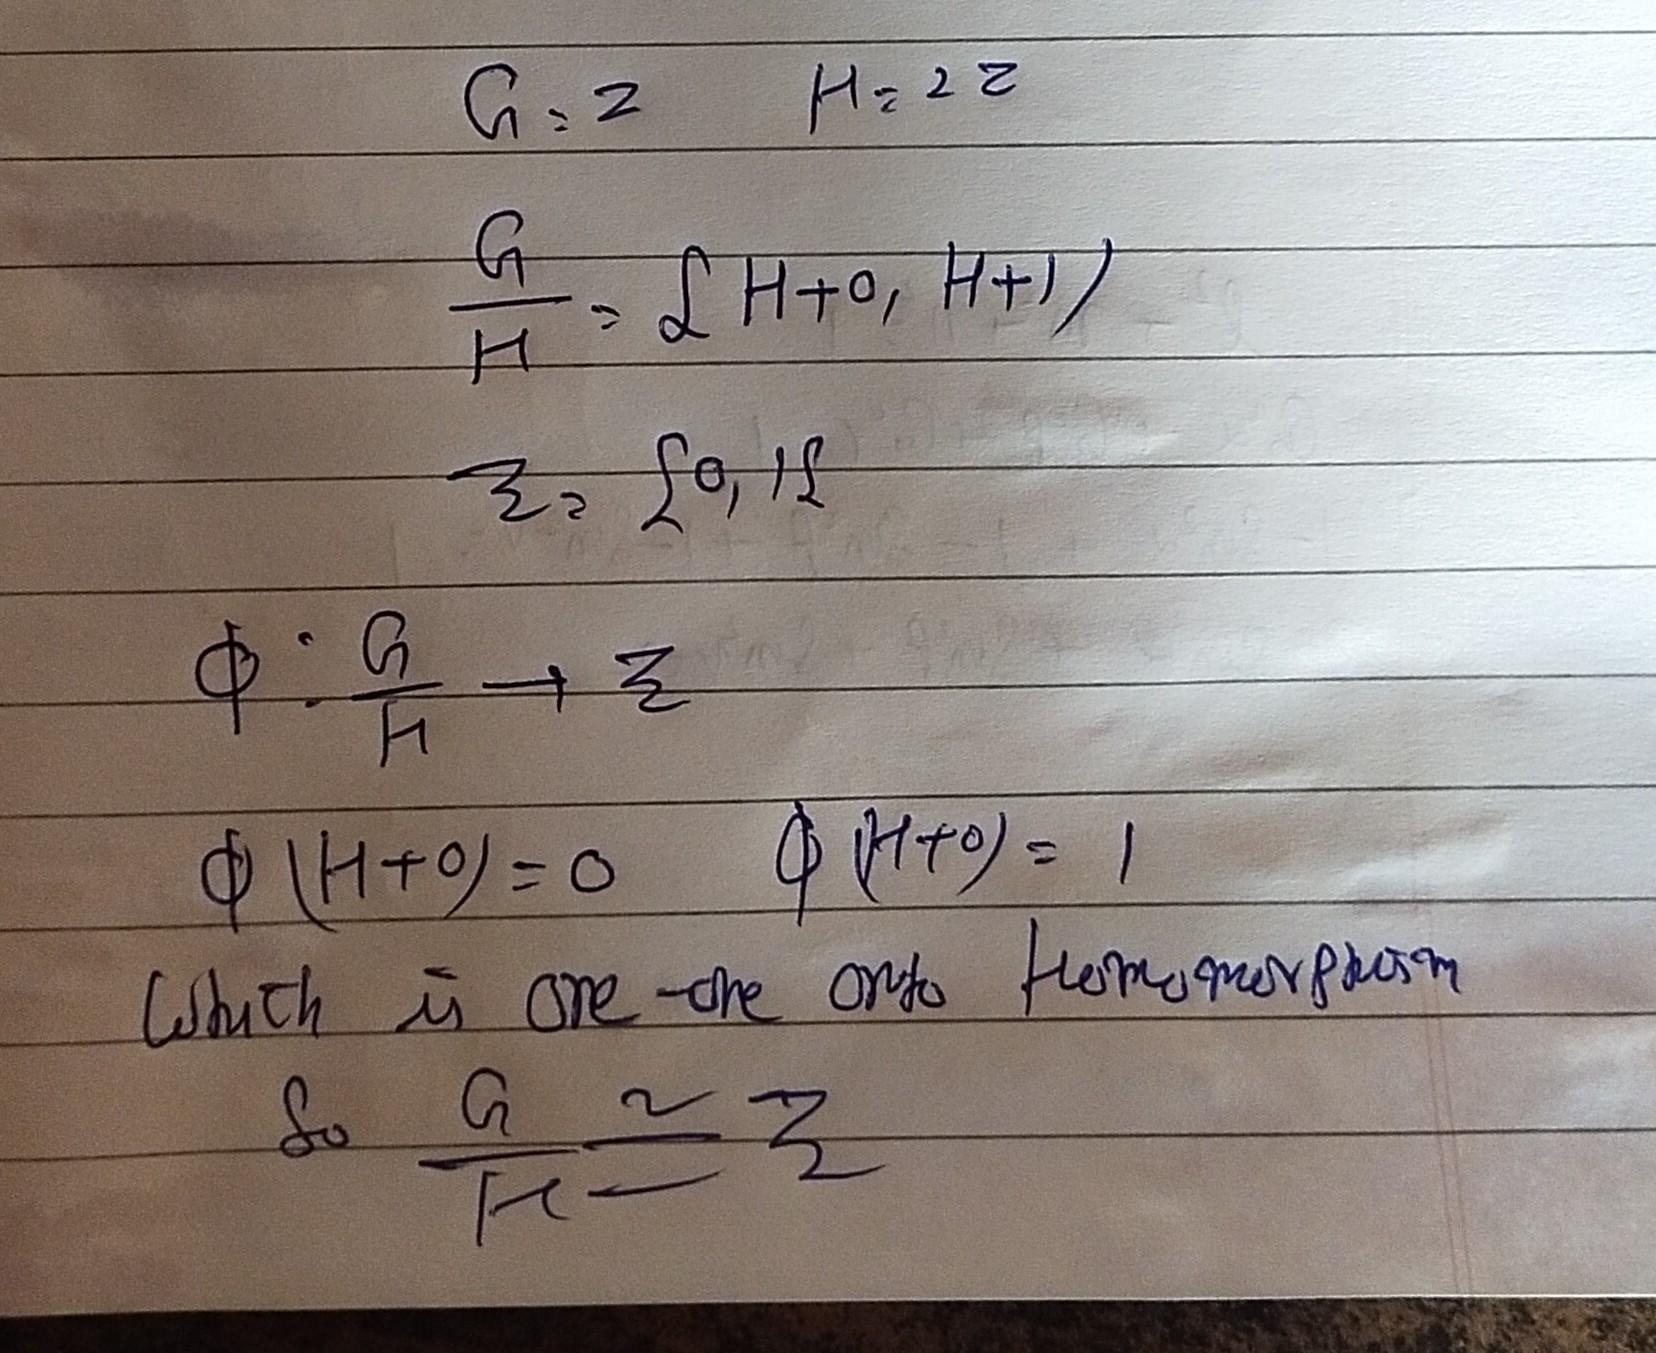 G = Z H = 2Z
G/H = {H+0, H+1}
Z₂ = {0, 1}
Φ : G/H → Z₂
Φ(H+0) = 0 Φ(H+0) = 1
Which is one-one onto Homomorphism
So G/H ≅ Z₂